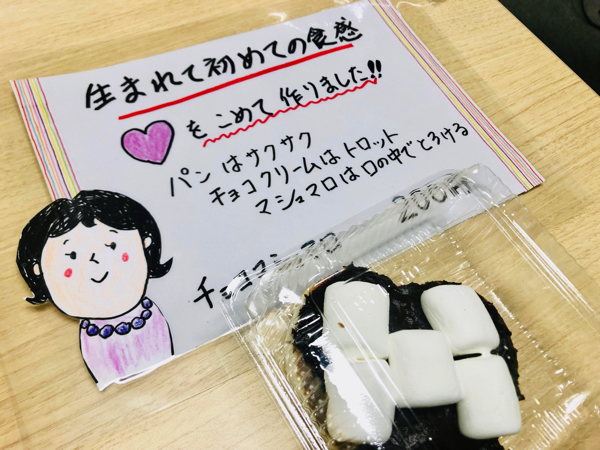 生まれて初めての食感
をこめて作りました!!
パンはサクサク
チョコクリームはトロット
マシュマロは口の中でとろける
チョコマシマロ 200円